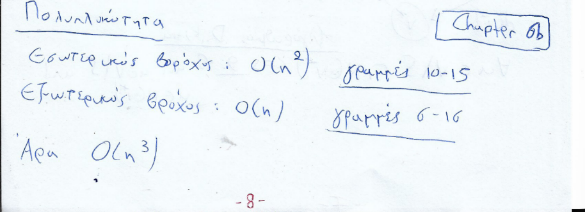 Πολυπλοκότητα
Chapter 6b
Εσωτερικός βρόχος : O(n²) γραμμές 10-15
Εξωτερικός βρόχος : O(n) γραμμές 6-16
Άρα O(n³)
-8-